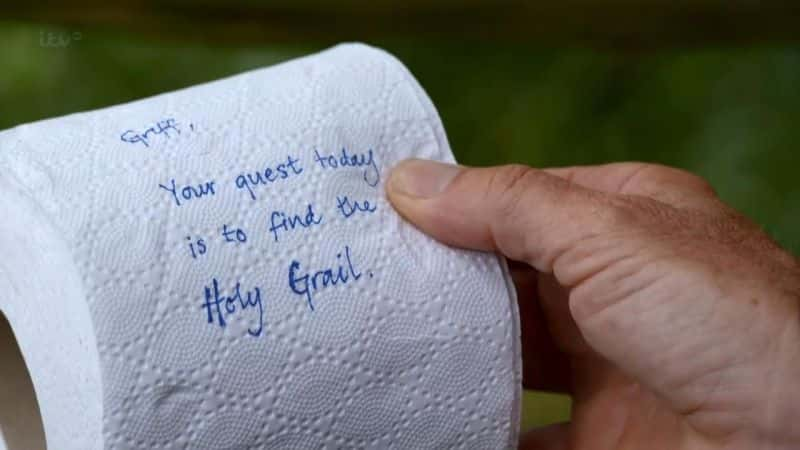 itv
Griff,
Your quest today
is to find the
Holy Grail.